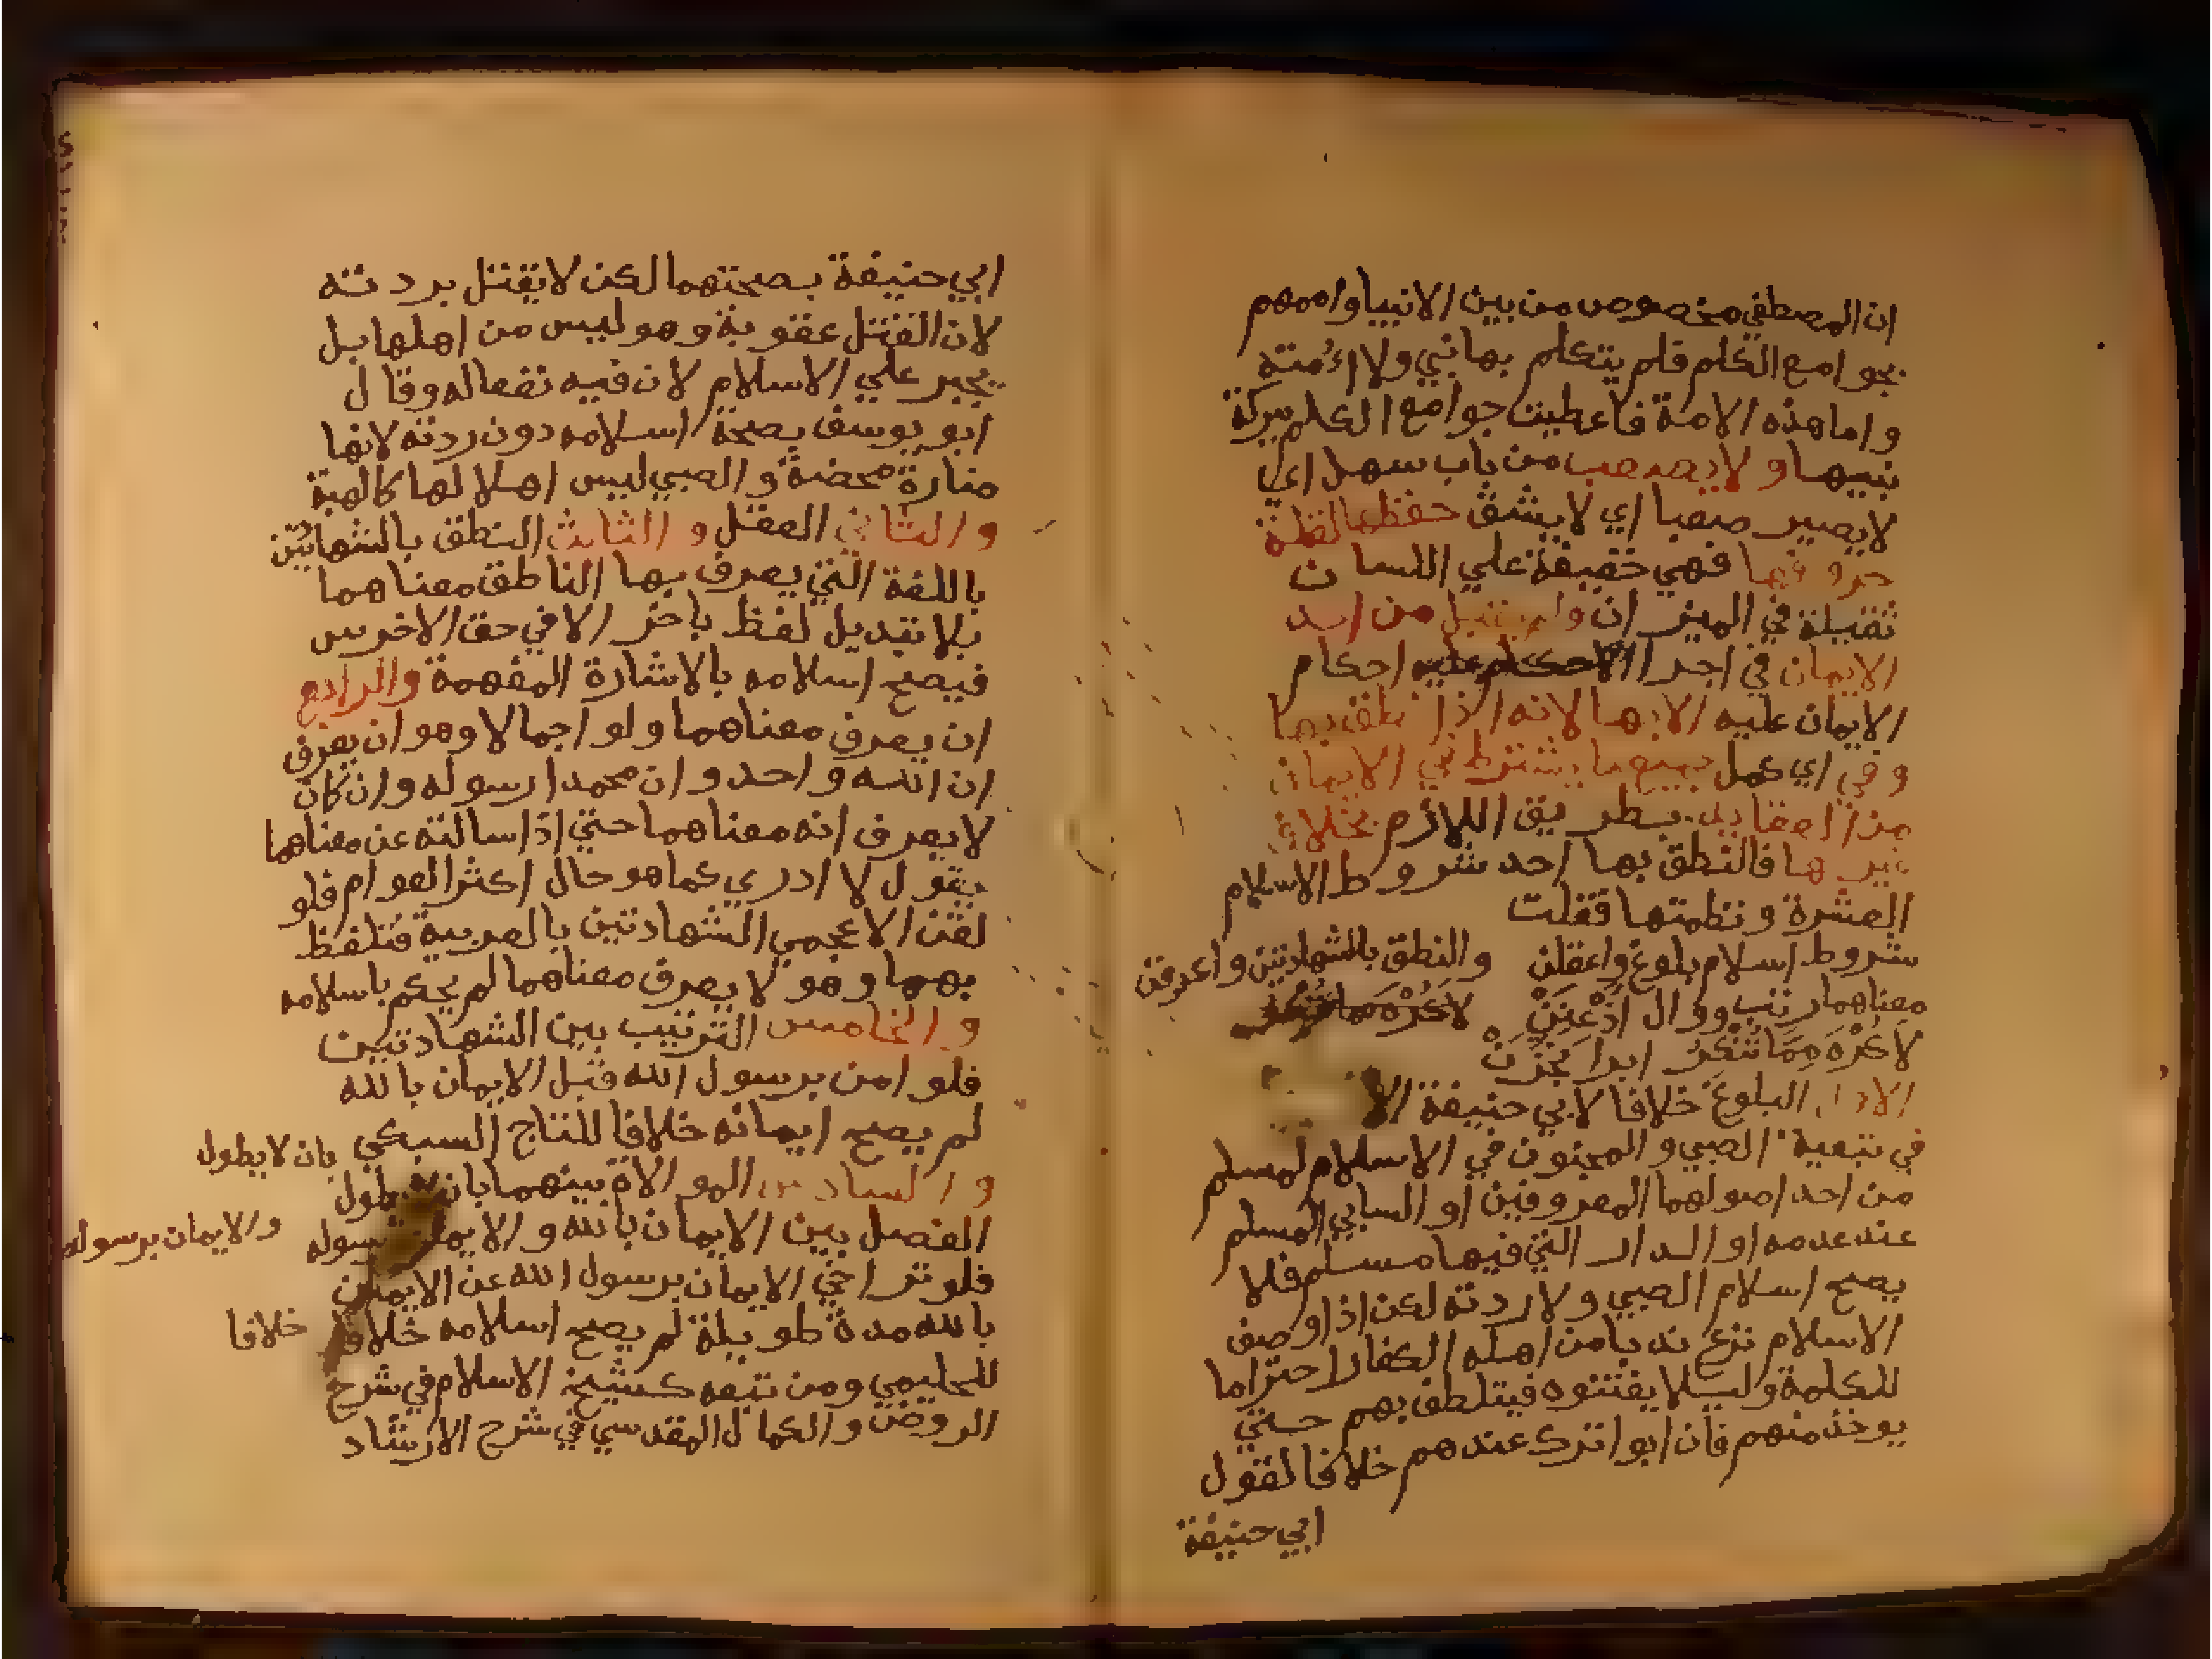 ان المصطفي مخصوص من بين الانبيا واممهم
بجوامع الكلم فلم يتكلم بها نبي ولا اُمته
واما هذه الامة فاعطيت جوامع الكلم ببركة
نبيها ولا يصعب من باب سهل اي
لا يصير صعبا اي لا يشق حفظها لقلة
حروفها فهي خفيفة علي اللسان
ثقيلة في الميزان ولم يقبل من احد
الايمان في اجرا احكام
الايمان عليه الا بها لانه اذا نطق بها
وفي اي كمل جميع ما يشترط في الايمان
من العقايد بطريق اللازم بخلاف
غيرها فالنطق بها احد شروط الاسلام
العشرة ونظمتها فقلت
شروط اسلام بلوغ واعقلن والنطق بالشهادتين واعرفن
معناهما رتب ووال اذْعِنَنْ
لاكُرْهَ مِمَّا تُنْكِرُ ابرا نجزن
الاول البلوغ خلافا لابي حنيفة الا
في تبعية الصبي والمجنون في الاسلام لمسلم
من احد اصولهما المعروفين او السابي المسلم
عند عدمه او الدار التي فيها مسلم فلا
يصح اسلام الصبي ولا ردته لكن اذا وصف
الاسلام نزع ندبا من اهله الكفار احتراما
للكلمة وليلا يفتنوه فيتلطف بهم حتي
يوخذ منهم فان ابوا ترك عندهم خلافا لقول
ابي حنيفة
ابي حنيفة بصحتهما لكن لا يقتل بردته
لان القتل عقوبة وهو ليس من اهلها بل
يجبر علي الاسلام لان فيه نفعا له وقال
ابو يوسف بصحة اسلامه دون ردته لانها
محضة والصبي ليس اهلا لها كالهبة
والثاني العقل والثالث النطق بالشهادتين
باللغة التي يعرف بها الناطق معناهما
بلا تبديل لفظ باخر الا في حق الاخرس
فيصح اسلامه بالاشارة المفهمة والرابع
ان يعرف معناهما ولو اجمالا وهو ان يعرف
ان الله واحد وان محمدا رسوله وان كان
لا يعرف انه معناهما حتي اذا سالته عن معناهما
يقول لا ادري كما هو حال اكثر العوام فلو
لقن الاعجمي الشهادتين بالعربية فتلفظ
بهما وهو لا يعرف معناهما لم يحكم باسلامه
والخامس الترتيب بين الشهادتين
فلو امن برسول الله قبل الايمان بالله
لم يصح ايمانه خلافا للتاج السبكي
بان لا يطول
والسادس الموالاة بينهما بان لا يطول
الفصل بين الايمان بالله والايمان برسوله
والايمان برسوله
فلو تراخي الايمان برسول الله عن الايمان
بالله مدة طويلة لم يصح اسلامه خلافا
خلافا
للحليمي ومن تبعه كشيخ الاسلام في شرح
الروض والكمال المقدسي في شرح الارشاد